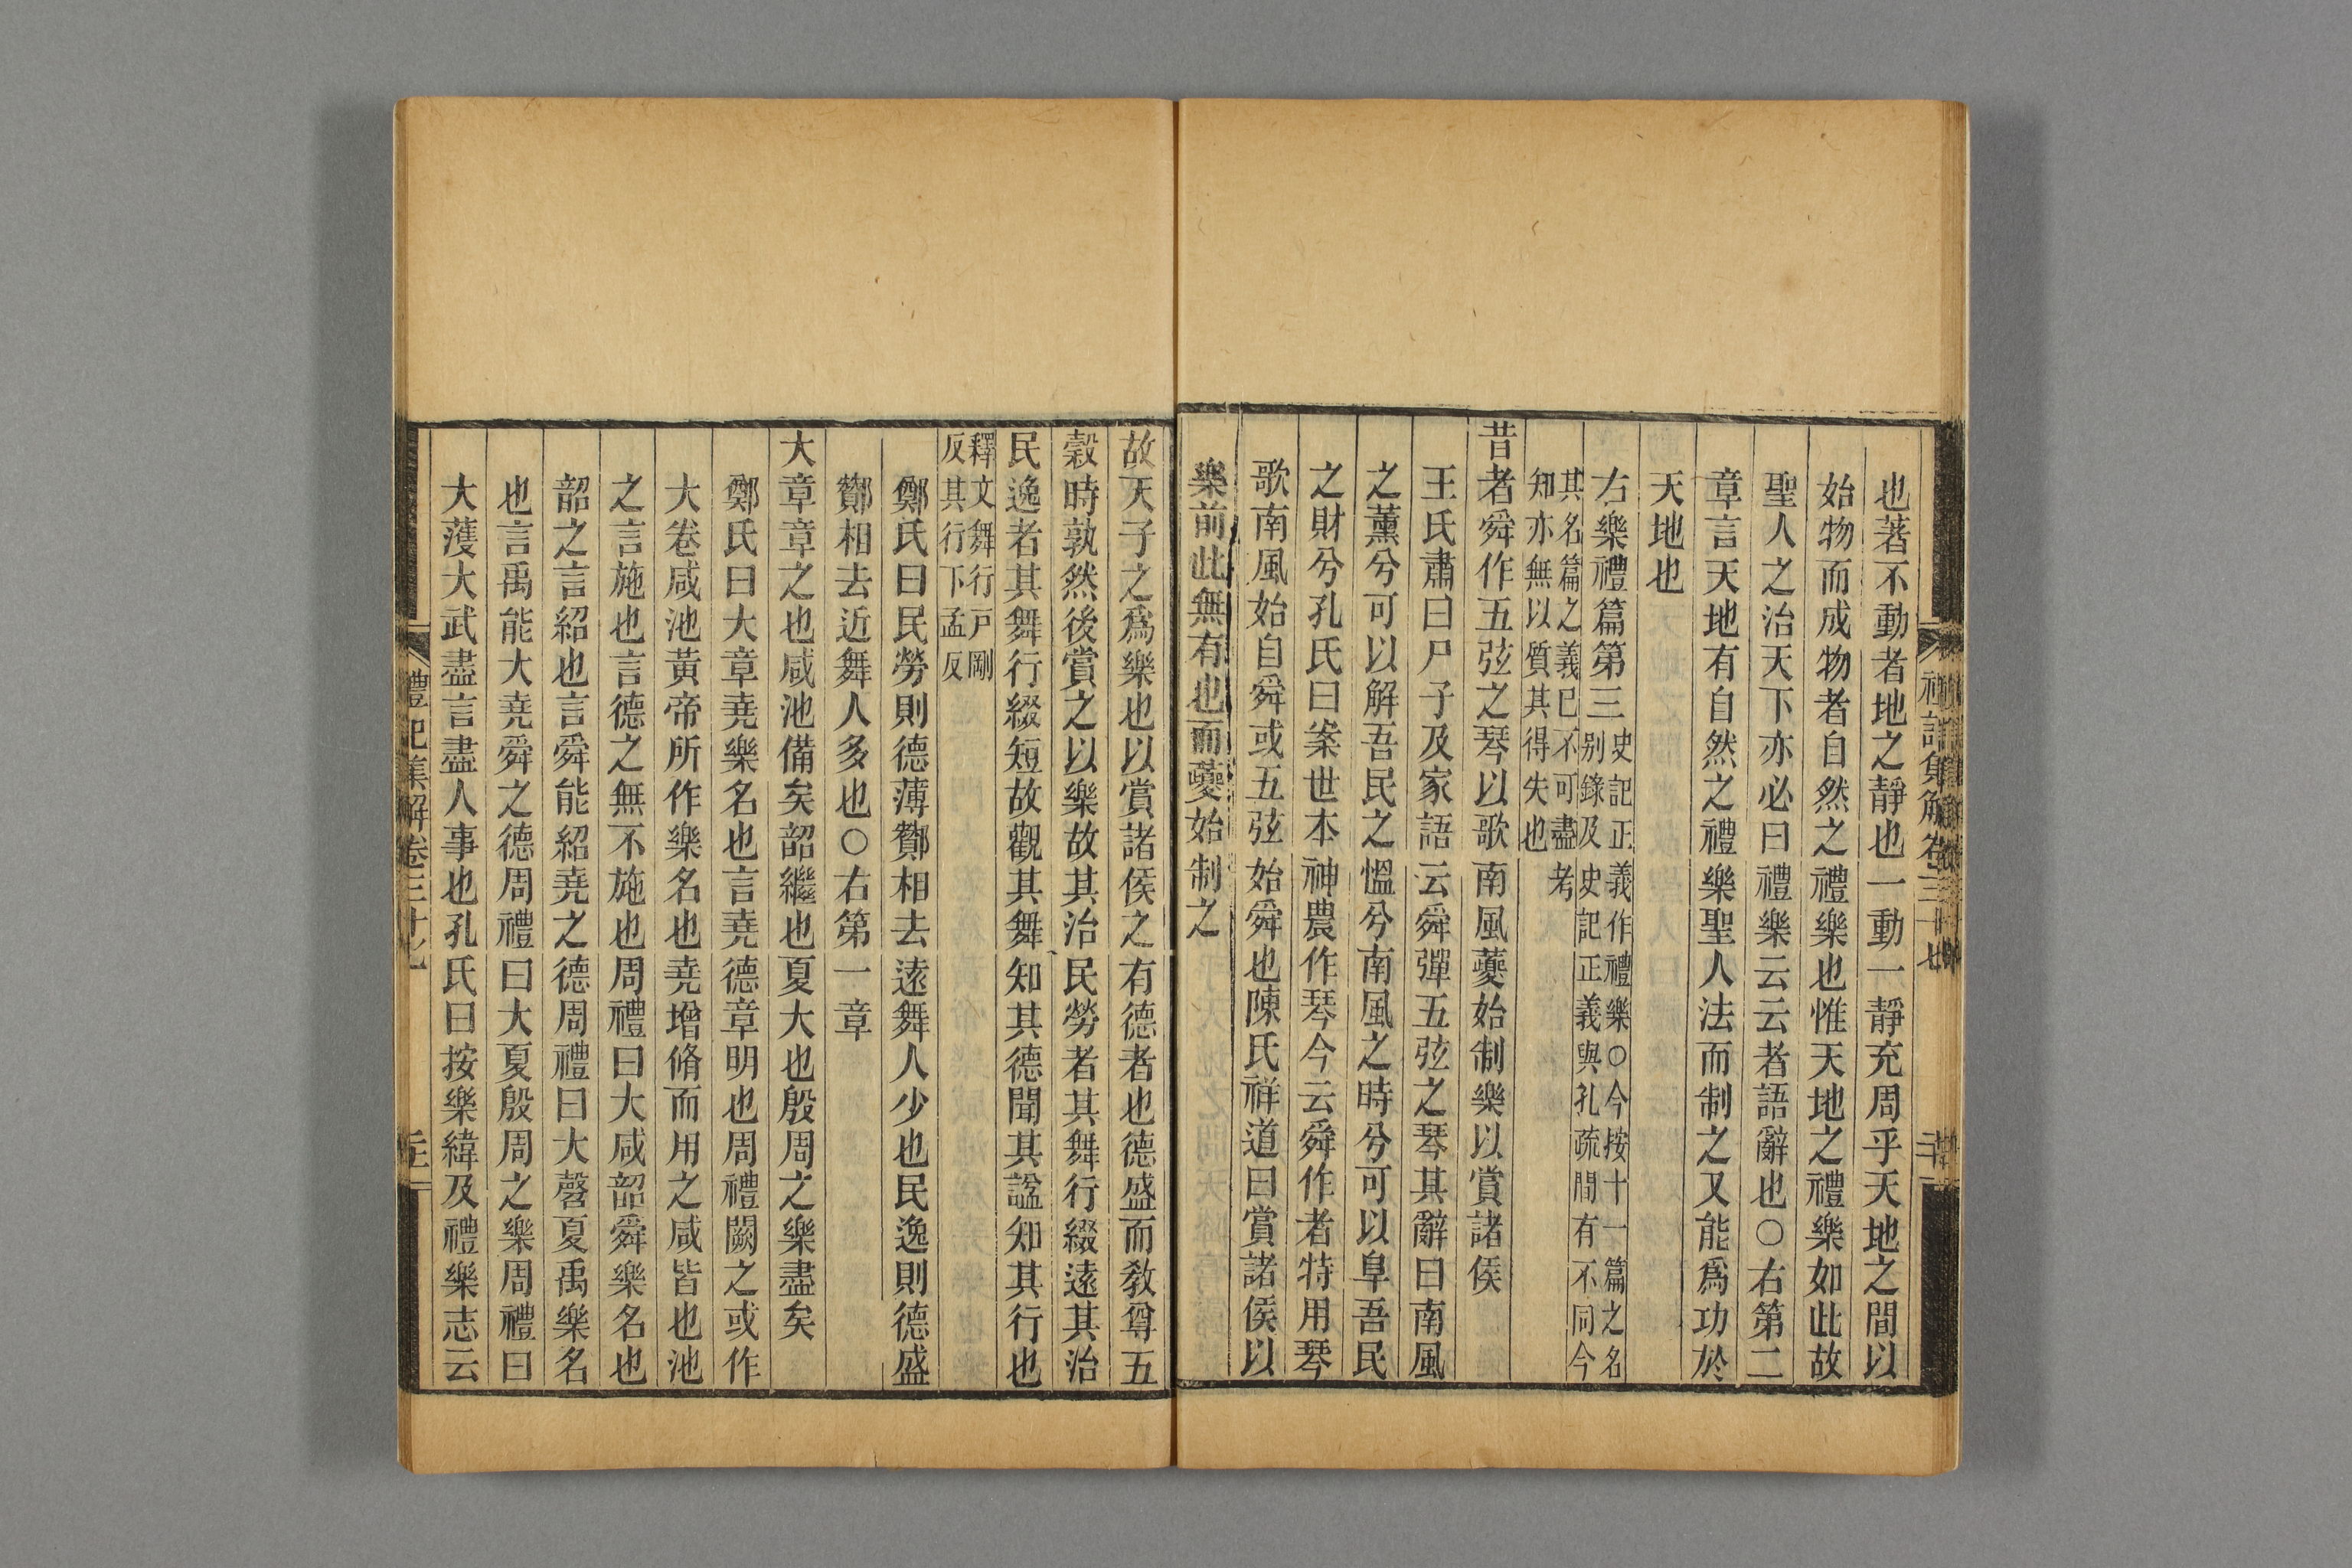 也著不動者地之靜也一動一靜充周乎天地之間以
始物而成物者自然之禮樂也惟天地之禮樂如此故
聖人之治天下亦必曰禮樂云云者語辭也○右第二
章言天地有自然之禮樂聖人法而制之又能爲功於
天地也
右樂禮篇第三
史記正義作禮樂○今按十一篇之名
别錄及史記正義與孔疏間有不同今
其名篇之義已不可盡考
知亦無以質其得失也
昔者舜作五弦之琴以歌南風夔始制樂以賞諸侯
王氏肅曰尸子及家語云舜彈五弦之琴其辭曰南風
之薰兮可以解吾民之慍兮南風之時兮可以阜吾民
之財兮孔氏曰案世本神農作琴今云舜作者特用琴
歌南風始自舜或五弦始舜也陳氏祥道曰賞諸侯以
樂前此無有也而夔始制之
故天子之爲樂也以賞諸侯之有德者也德盛而敎尊五
穀時孰然後賞之以樂故其治民勞者其舞行綴遠其治
民逸者其舞行綴短故觀其舞知其德聞其謚知其行也
釋文舞行戸剛
反其行下孟反
鄭氏曰民勞則德薄酇相去遠舞人少也民逸則德盛
酇相去近舞人多也○右第一章
大章章之也咸池備矣韶繼也夏大也殷周之樂盡矣
鄭氏曰大章堯樂名也言堯德章明也周禮闕之或作
大卷咸池黃帝所作樂名也堯增脩而用之咸皆也池
之言施也言德之無不施也周禮曰大咸韶舜樂名也
韶之言紹也言舜能紹堯之德周禮曰大㲈夏禹樂名
也言禹能大堯舜之德周禮曰大夏殷周之樂周禮曰
大濩大武盡言盡人事也孔氏曰按樂緯及禮樂志云
禮記集解卷三十七